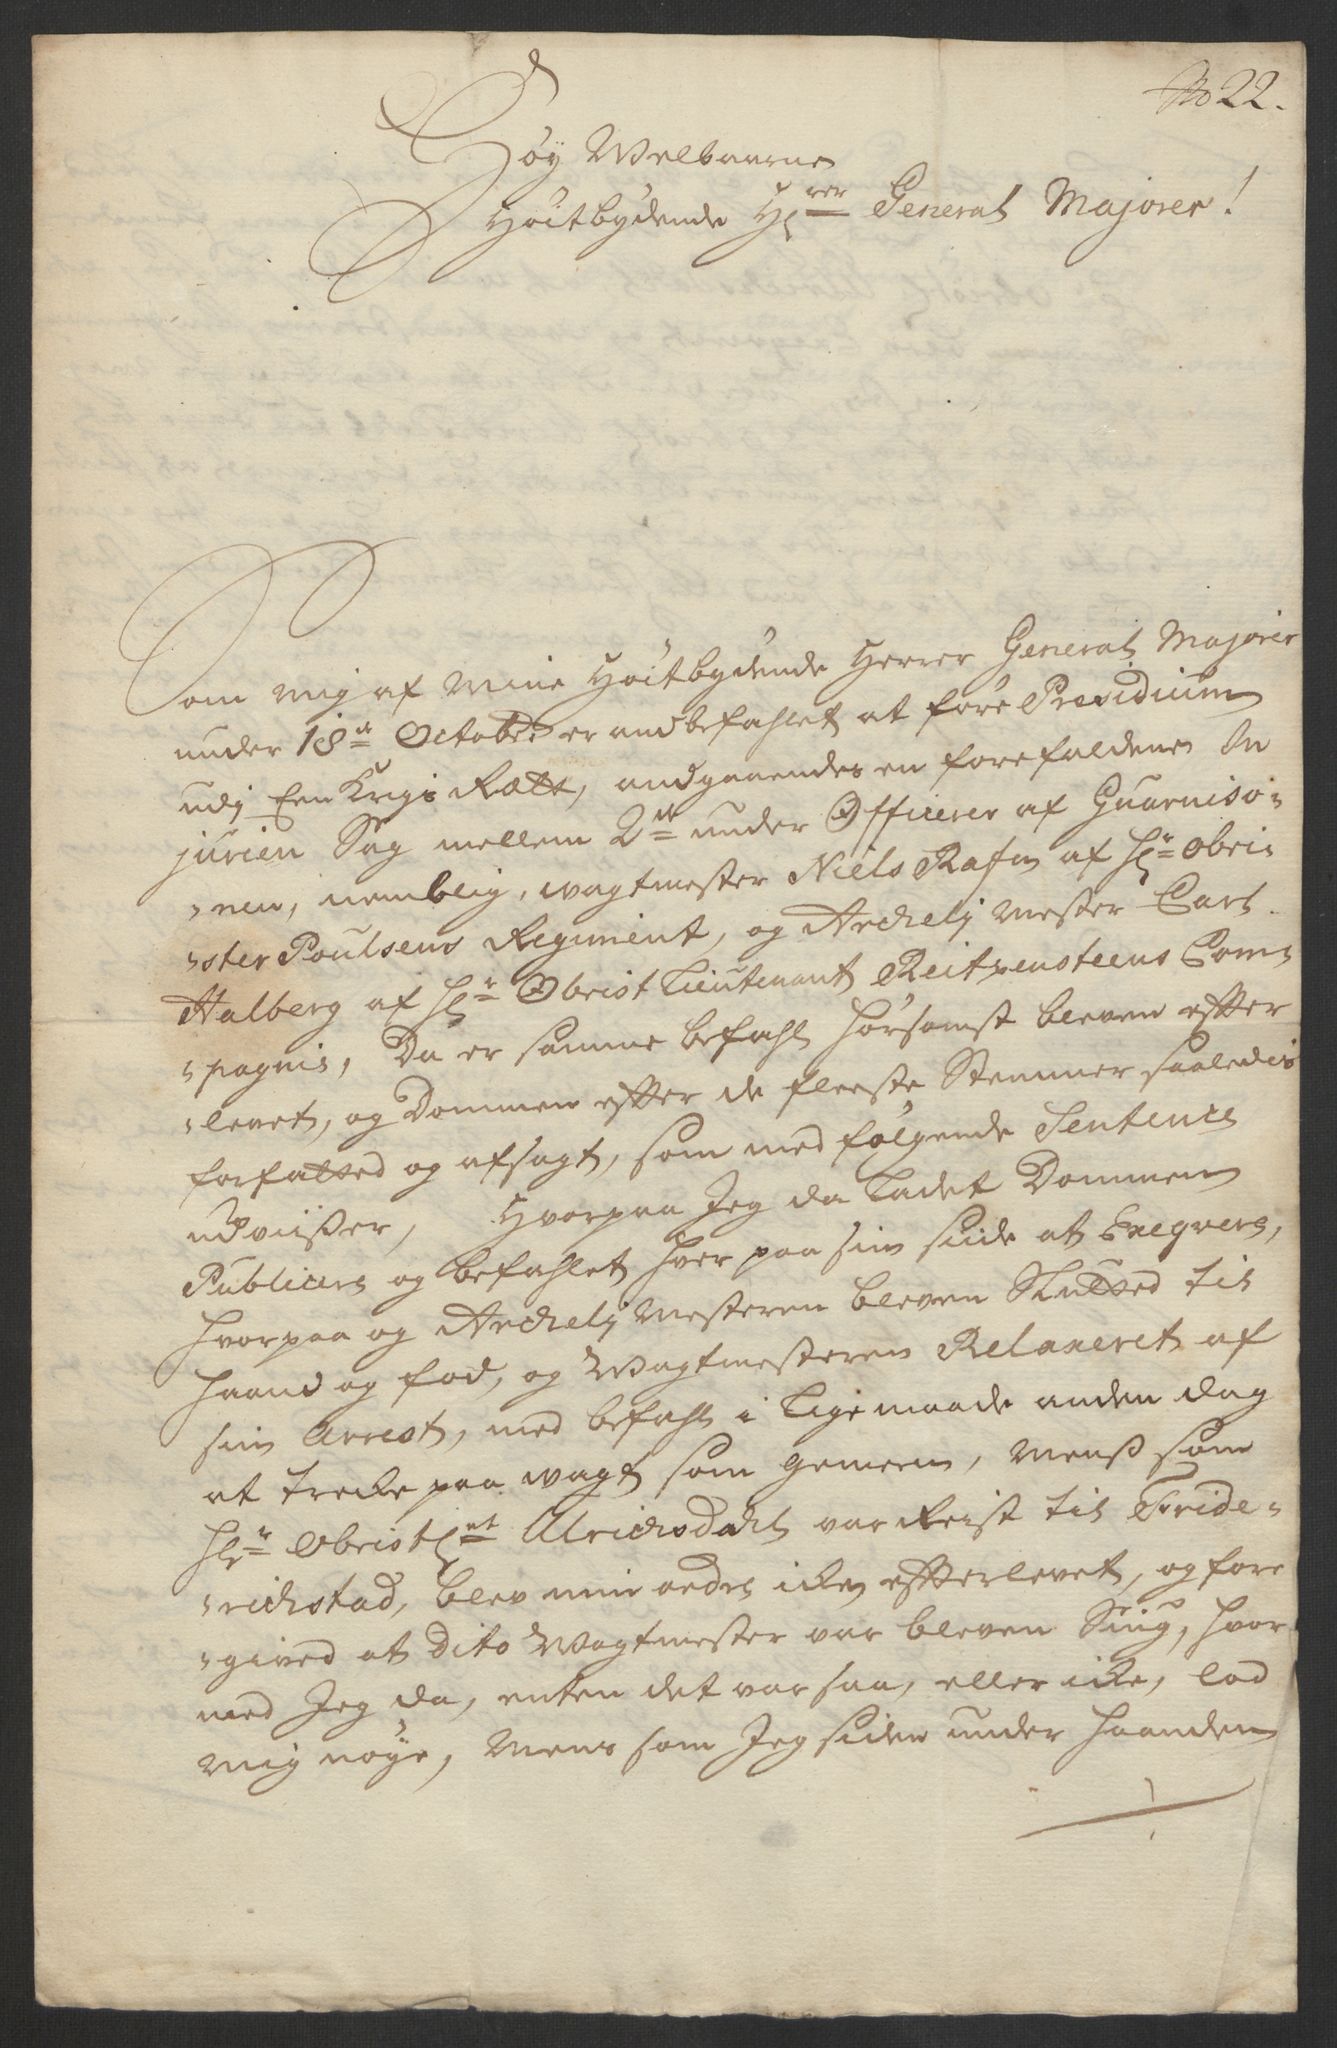 No 22.
Høy Welbaarne
Høitbydende Hrrer General Majorer!
Som mig af Mine Høitbydende Herrer General Majorer
under 18de October er andbefahlet at føre Presidium
udj Een Krigs Rætt, andgaaendes en forefaldene In
jurien Sag mellem 2de under Officerer af Guarniso-
-nen, nemblig, wagtmester Niels Rafn af Hr Obri-
-ster Poulsens Regiment, og Archelj Mester Carl
Halberg af Hr Obrist Lieutenant Reitzensteens Com-
-pagnie, Da er samme befahl hørsomst bleven effter
-levet, og Dommen effter de fleeste Stemmer saaledis
forfatted og afsagt, som med følgende Sentence
udviißer, Hvorpaa Jeg da ladet Dommen
Publicere og befahlet hver paa sin siide at Exeqvere,
hvorpaa og Archelj Mesteren bleven Slutted til
haand og fod, og Wagtmesteren Relaxeret af
sin Arrest, med befahl i lige maade anden dag
at trecke paa wagt som gemeen, Menß som
Hr Obristlnt Ulrichsdahl var Reist til Fride-
-richstad, blev min ordre icke effterlevet, og fore
-gived at dito Wagtmester var bleven Siug, hvor
med Jeg da, enten det var saa, eller icke, lod
mig nøye, Mens som Jeg siden under haanden